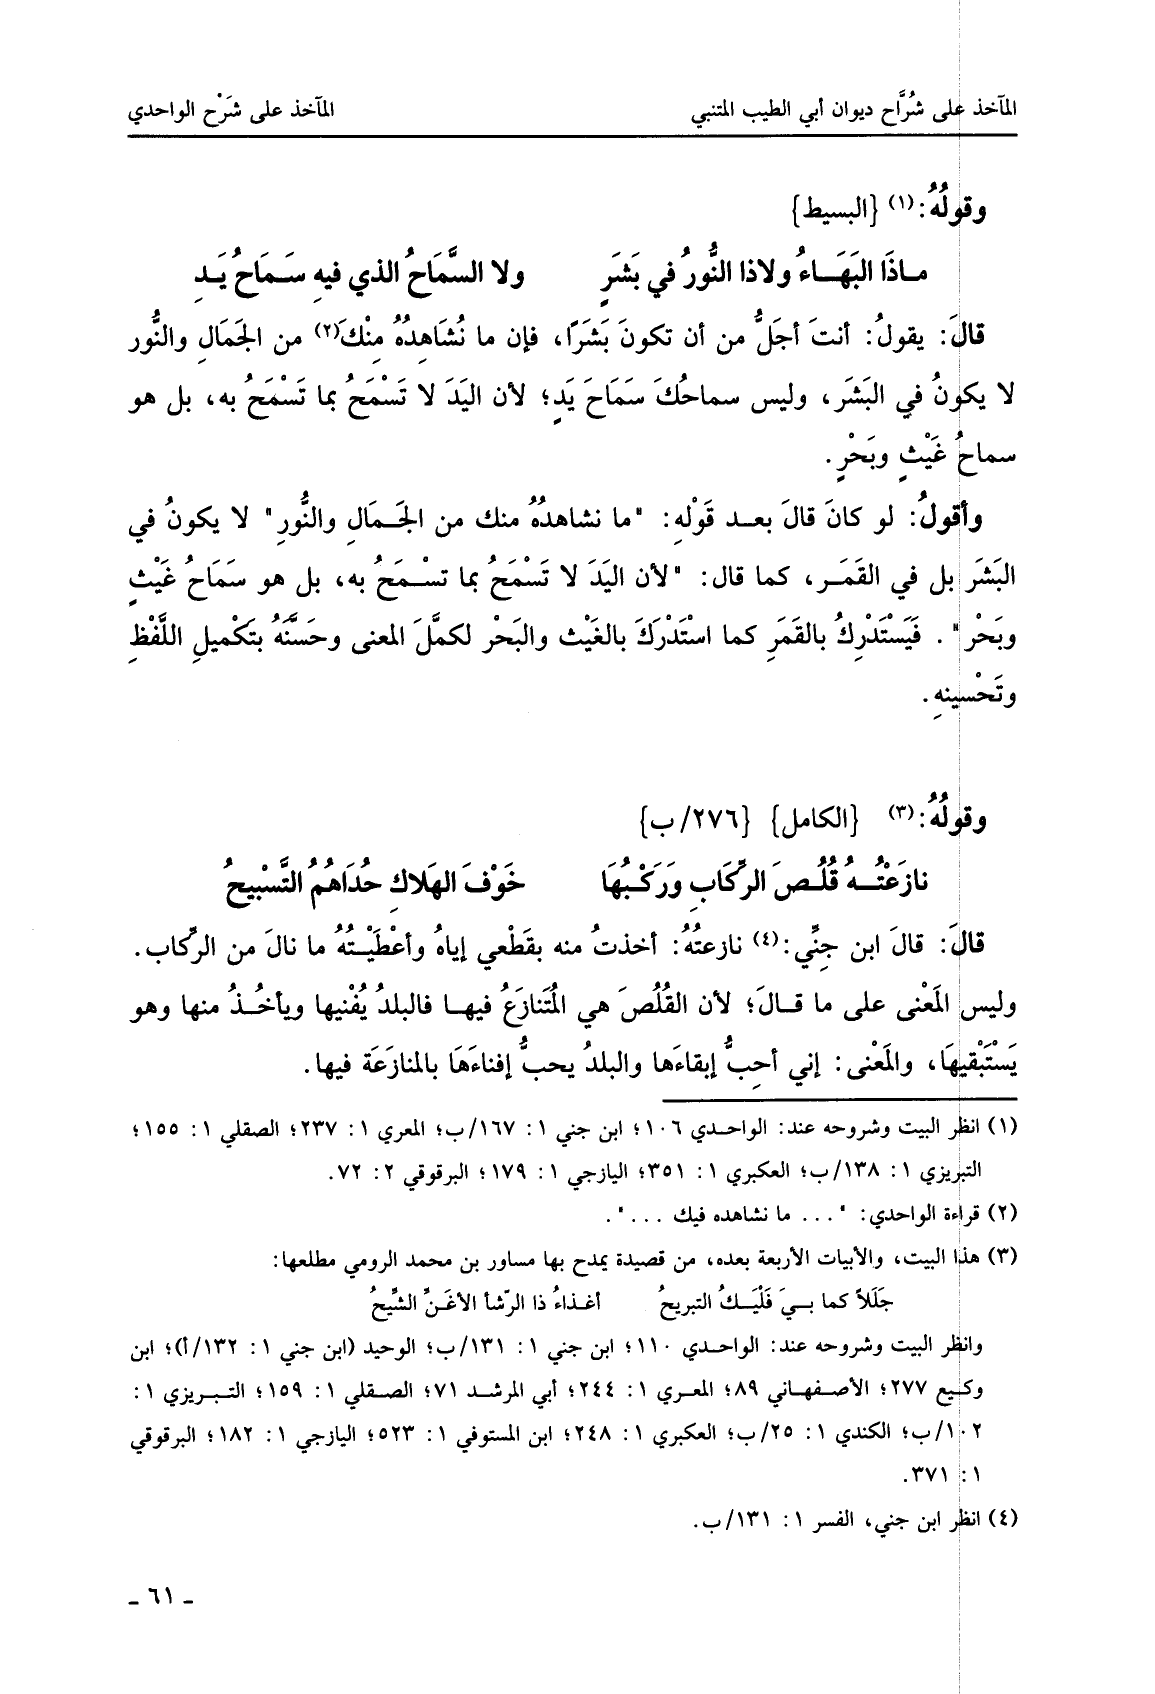 المآخذ على شُرَّاح ديوان أبي الطيب المتنبي المآخذ على شَرْح الواحدي
وقولُهُ:(١) {البسيط}
ماذَا البَهَاءُ ولاذا النُّورُ في بَشَرٍ ولا السَّمَاحُ الذي فيهِ سَمَاحُ يَدِ
قالَ: يقولُ: أنتَ أجَلُّ من أن تكونَ بَشَرًا، فإن ما نُشَاهِدُهُ مِنْكَ(٢) من الجَمَالِ والنُّور
لا يكونُ في البَشَر، وليس سماحُكَ سَمَاحَ يَدٍ؛ لأن اليَدَ لا تَسْمَحُ بما تَسْمَحُ به، بل هو
سماحُ غَيْثٍ وبَحْرٍ.
وأقولُ: لو كانَ قالَ بعد قَوْلِهِ: "ما نشاهدُهُ منك من الجَمَالِ والنُّورِ" لا يكونُ في
البَشَر بل في القَمَر، كما قال: "لأن اليَدَ لا تَسْمَحُ بما تسْمَحُ به، بل هو سَمَاحُ غَيْثٍ
وبَحْر". فَيَسْتَدْرِكُ بالقَمَرِ كما اسْتَدْرَكَ بالغَيْث والبَحْر لكمَّلَ المعنى وحَسَّنَهُ بتَكْميلِ اللَّفْظِ
وتَحْسينِهِ.
وقولُهُ:(٣) {الكامل} {٢٧٦/ب}
نازَعْتُهُ قُلُصَ الرِّكَابِ ورَكْبُهَا خَوْفَ الهَلاكِ حُدَاهُمُ التَّسْبيحُ
قالَ: قالَ ابن جنِّي:(٤) نازعتُهُ: أخذتُ منه بقَطْعي إياهُ وأعْطَيْتُهُ ما نالَ من الرِّكاب.
وليس المَعْنى على ما قالَ؛ لأن القُلُصَ هي المُتَنازَعُ فيها فالبلدُ يُفْنيها ويأخُذُ منها وهو
يَسْتَبْقيهَا، والمَعْنى: إني أحِبُّ إبقاءَها والبلدُ يحبُّ إفناءَهَا بالمنازَعَة فيها.
(١) انظر البيت وشروحه عند: الواحدي ١٠٦؛ ابن جني ١: ١٦٧/ب؛ المعري ١: ٢٣٧؛ الصقلي ١: ١٥٥؛
التبريزي ١: ١٣٨/ب؛ العكبري ١: ٣٥١؛ اليازجي ١: ١٧٩؛ البرقوقي ٢: ٧٢.
(٢) قراءة الواحدي: "... ما نشاهده فيك ...".
(٣) هذا البيت، والأبيات الأربعة بعده، من قصيدة يمدح بها مساور بن محمد الرومي مطلعها:
جَلَلاً كما بيَ فَلْيَكُ التبريحُ أغذاءُ ذا الرّشأ الأغَنِّ الشِّيحُ
وانظر البيت وشروحه عند: الواحدي ١١٠؛ ابن جني ١: ١٣١/ب؛ الوحيد (ابن جني ١: ١٣٢/أ)؛ ابن
وكيع ٢٧٧؛ الأصفهاني ٨٩؛ المعري ١: ٢٤٤؛ أبي المرشد ٧١؛ الصقلي ١: ١٥٩؛ التبريزي ١:
١٠٢/ب؛ الكندي ١: ٢٥/ب؛ العكبري ١: ٢٤٨؛ ابن المستوفي ١: ٥٢٣؛ اليازجي ١: ١٨٢؛ البرقوقي
١: ٣٧١.
(٤) انظر ابن جني، الفسر ١: ١٣١/ب.
ـ ٦١ ـ